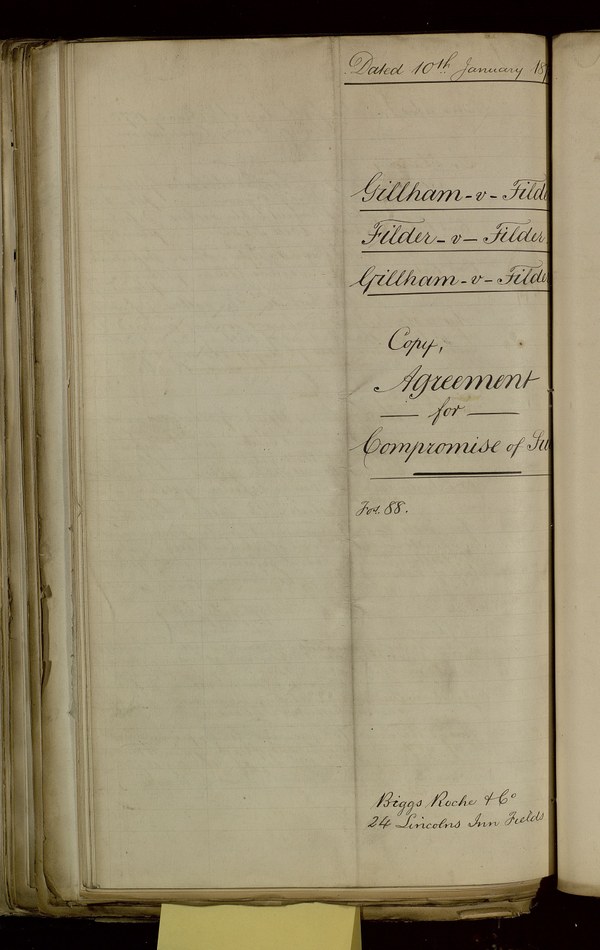 Dated 10th January 18
Gillham - v - Filde
Filder - v - Filder
Gillham - v - Filder
Copy,
Agreement
for
Compromise of Su
Fos. 88.
Biggs Roche & Co
24 Lincolns Inn Fields